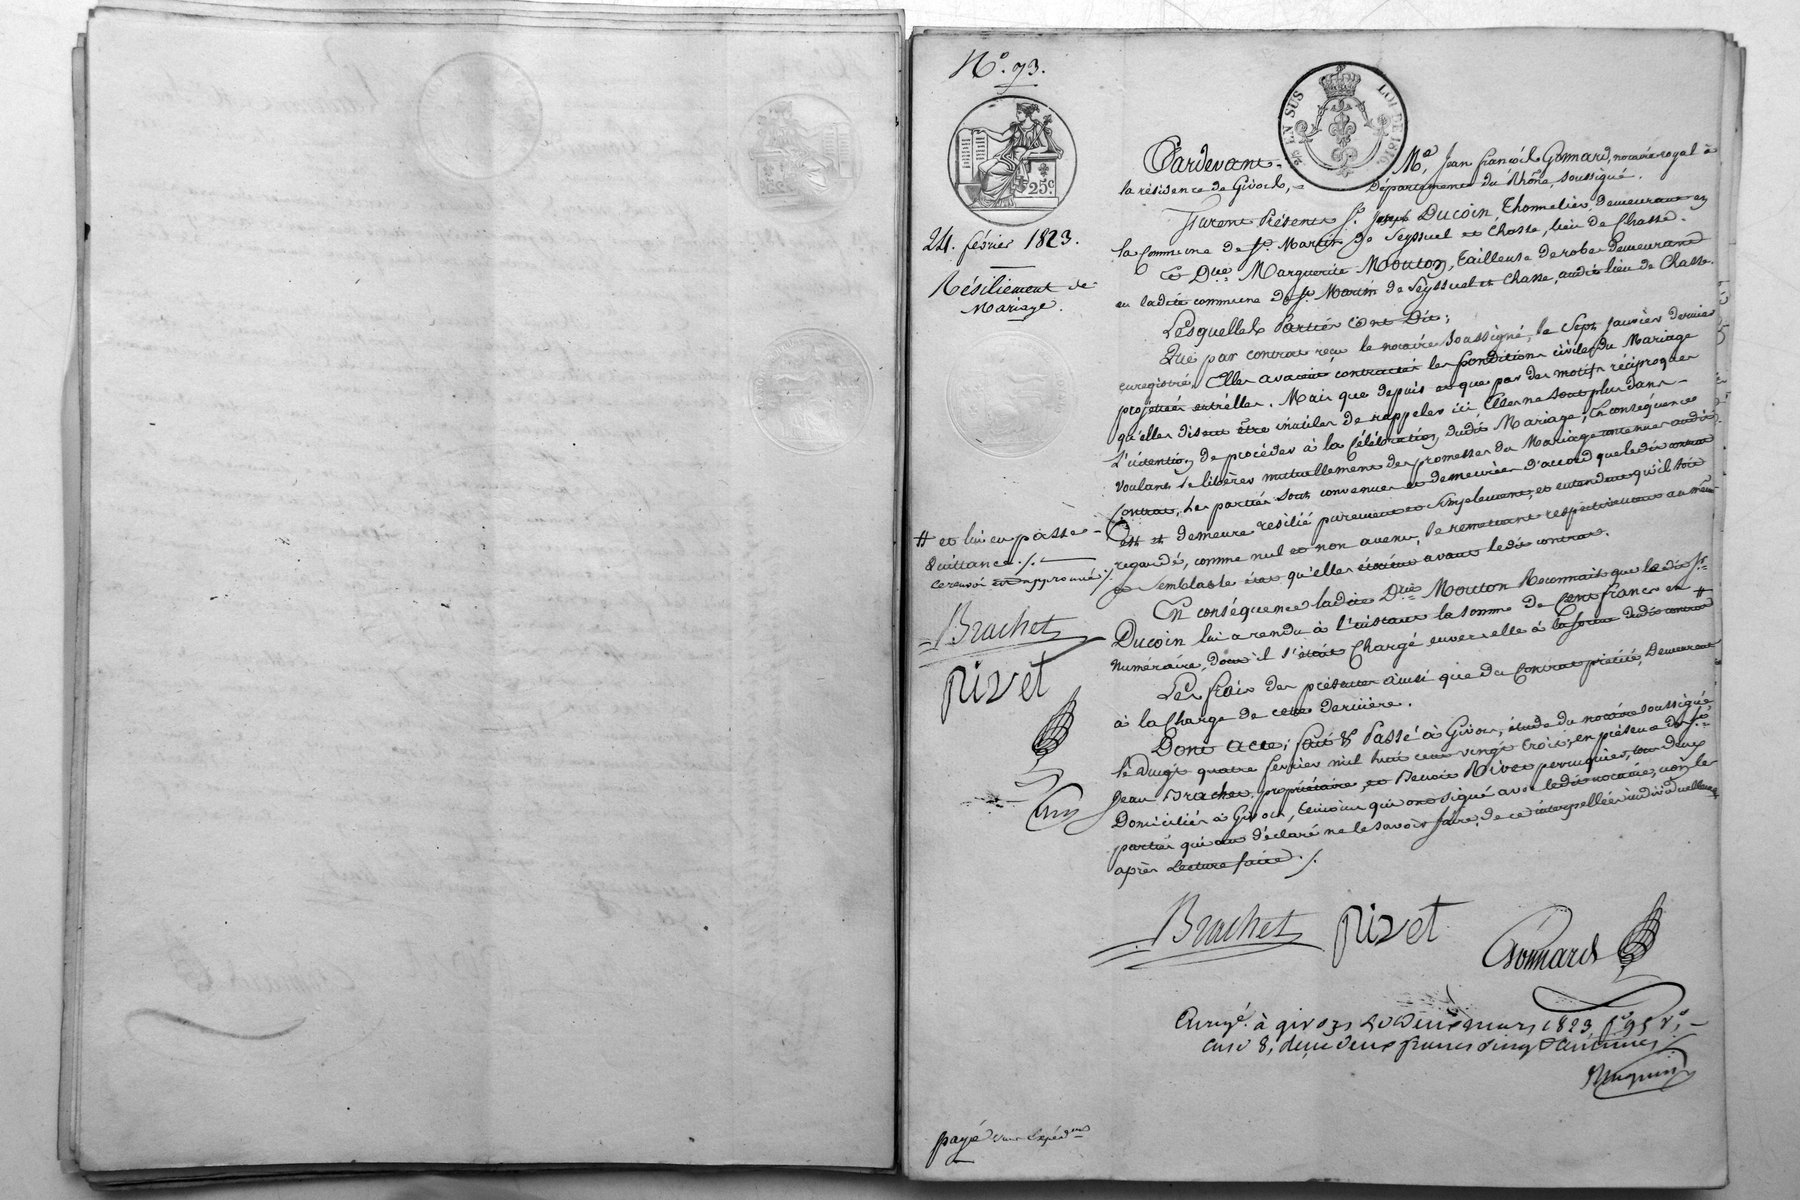 N.º 73.
25 EN SUS
LOI DE 1816
25.c
24. février 1823.
Résiliement de
Mariage.
Pardevant Me. Jean françois Gonnard, notaire royal à
la résidence de Givors, Département du Rhône, soussigné.
Furent Présents Sr. Joseph Ducoin, Thonnelier, demeurant en
la Commune de St. Martin de Seyssuel et Chasse, lieu de Chasse.
Et Dlle. Marguerite Mouton, tailleuse de robe demeurant
en ladite commune de St. Martin de Seyssuel et Chasse, audit lieu de Chasse.
Lesquelles Parties Ont Dit;
Que par contrat reçu le notaire Soussigné, le Sept Janvier dernier
enregistré, Elles avaient contractés les Conditions civiles du Mariage
projettées entr'elles. Mais que depuis et que par des motifs réciproques
qu'elles disent être inutiles de rappeler ici, Elles ne sont plus dans
l'intention de procéder à la Célébration dudit Mariage; En conséquence
voulant se libérer mutuellement des promesses du Mariage contenues audit
Contrat, Les parties sont convenues et demeurées d'accord que ledit contrat
est et demeure résilié purement et simplement, et entendent qu'il soit
regardé, comme nul et non avenu, se remettant respectivement au même
et semblable état qu'elles étaient avant ledit contrat.
En conséquence ladite Dlle. Mouton Reconnait que ledit Sr.
Ducoin lui a rendu à l'instant la somme de Cent francs en
numéraire, dont il s'était Chargé envers elle à la forme dudit contrat #
Les frais des présentes ainsi que du Contrat précité, Demeurent
à la Charge de cette dernière.
Dont Acte; fait & Passé à Givors, étude du notaire soussigné
le Vingt quatre février mil huit cent vingt trois, en présence de Srs.
Jean Brachet, propriétaire, et Benoit Rivet perruquier, tous deux
Domiciliés à Givors, témoins qui ont signé avec ledit notaire, non les
parties qui ont déclaré ne le savoir faire, de ce interpellées individuellement
après Lecture faite ./.
# et lui en passe
Quittance ./.
ce renvoi est approuvé ./.
Brachet
Rivet
Brachet Rivet Gonnard
Enregé. à givors le Deux mars 1823, fº 95 vº,
case 8, reçu deux francs vingt centimes
payé une Expédon